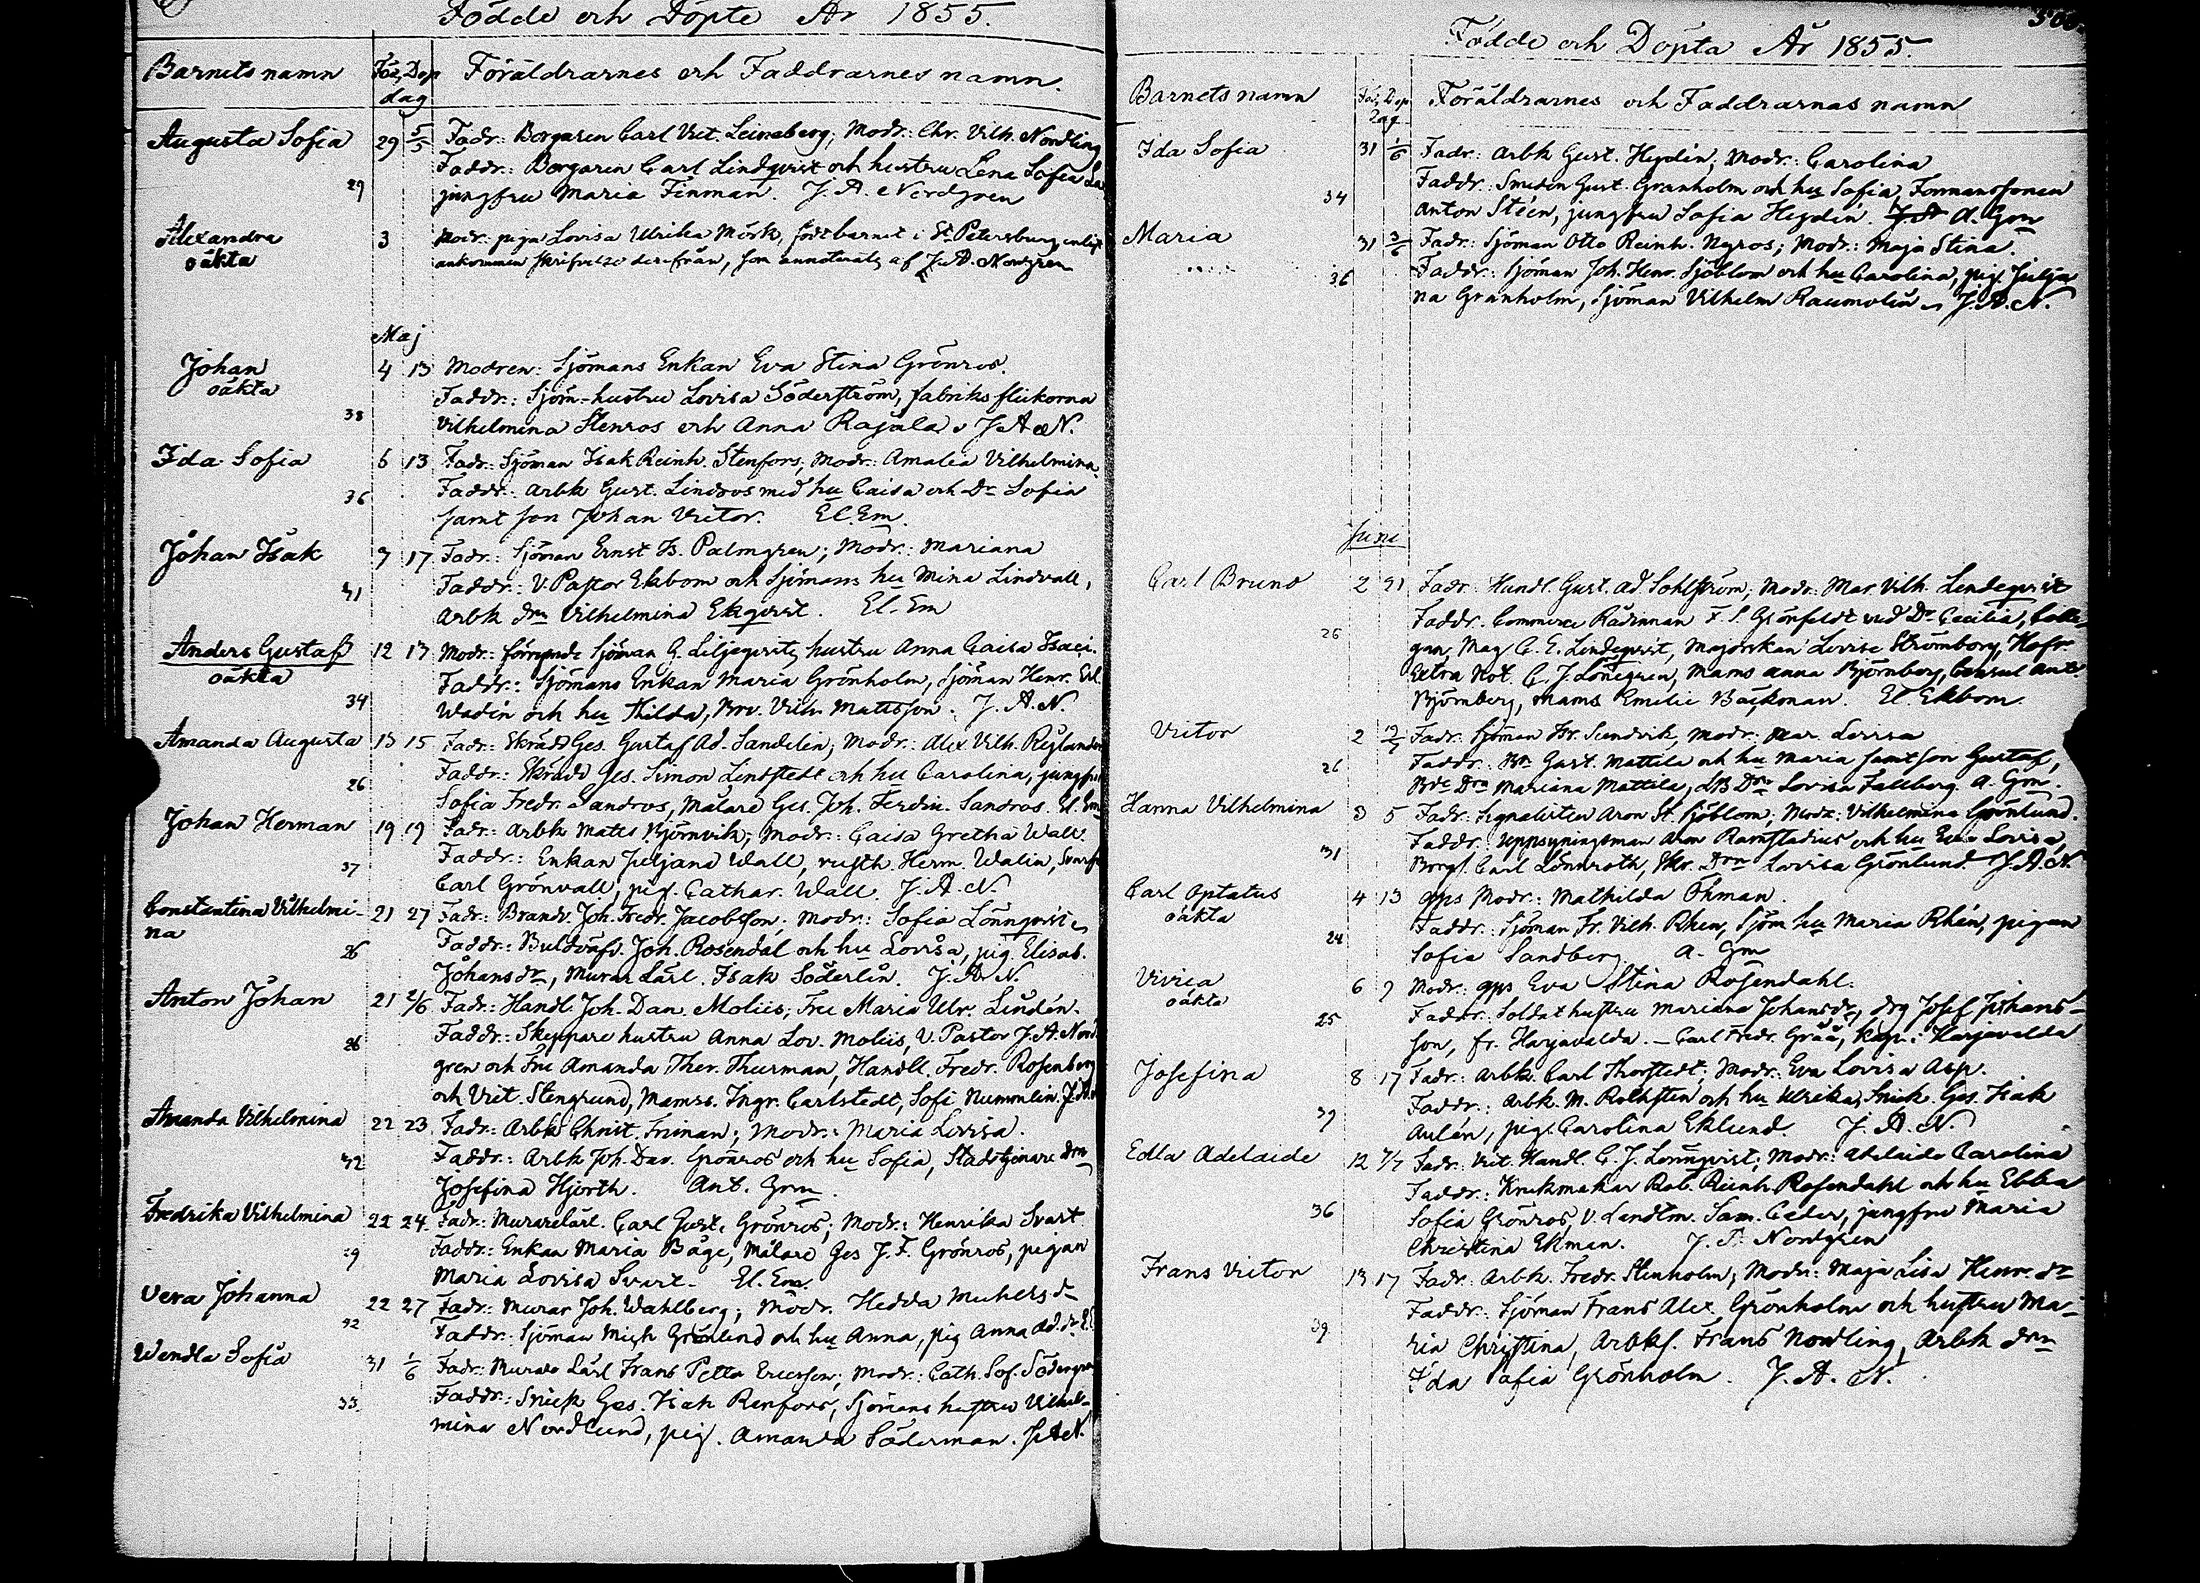 Födde och Döpte År 1855.
Barnets namn Föd. Döp dag Föräldrarnes och Faddrarnes namn.
Augusta Sofia 29 5/5 Fadr: Borgaren Carl Vict. Leineberg; Modr: Chr. Vilh. Nordling
Faddr: Borgaren Carl Lindqvist och hustru Lena Sofia
29 jungfru Maria Finman. J. A. Nordgren
Alexandra 3 Modr: pigan Lovisa Ulrika Mörk, födt barnet i St Petersburg enligt
oäkta ankommen skrifvelse derifrån, som annoterats af J. A. Nordgren
Maj
Johan 4 13 Modren: Sjömans Enkan Eva Stina Grönros.
oäkta Faddr: Sjöm-hustru Lovisa Söderström, fabriksflickorna
38 Vilhelmina Stenros och Anna Rajala. J. A. N.
Ida Sofia 6 13 Fadr: Sjöman Isak Reinh. Stenfors, Modr: Amalia Vilhelmina.
36 Faddr: Arbk Gust. Lindros med hu Caisa och Dr Sofia
samt son Johan Victor. El. Em.
Johan Isak 7 17 Fadr: Sjöman Ernst Is. Palmgren; Modr: Mariana
41 Faddr: V. Pastor Ekbom och Sjömans hu Mina Lindvall,
Arbk drn Vilhelmina Ekqvist. El. Em
Anders Gustaf 12 13 Modr: förrymde Sjöman G. Liljeqvists hustru Anna Caisa Isaci.
oäkta Faddr: Sjömans Enkan Maria Grönholm, Sjöman Henr.
34 Wadén och hu Thilda, Vilh. Mattsson. J. A. N.
Amanda Augusta 13 15 Fadr: Skrädd Ges. Gustaf Ad. Sandelin; Modr: Alex. Vilh. Rylander
Faddr: Skrädd Ges. Simon Lindstedt och hu Carolina, jungfru
26 Sofia Fredr. Sandros, Målare Ges. Joh. Ferdin. Sandros. El. Em
Johan Herman 19 19 Fadr: Arbk Matts Björnvik; Modr: Caisa Gretha Wall.
37 Faddr: Enkan Juljana Wall, Herm. Walin,
Carl Grönvall, pig. Cathar. Wall. J. A. N.
Constantina Vilhelmi- 21 27 Fadr: Brandv. Joh. Fredr. Jacobsson; Modr: Sofia Lönnqvist
na Faddr: Joh. Rosendal och hu Lovisa, pig. Elisab.
26 Johansdr, Murar Lärl. Isak Söderlin. J. A. N.
Anton Johan 21 2/6 Fadr: Handl. Joh. Dan. Moliis; Fru Maria Ulr. Lindén.
26 Faddr: Skeppare hustru Anna Lov. Moliis, V. Pastor J. A. Nord-
gren och Fru Amanda Ther. Thurman, Handll. Fredr. Rosenberg
och Vict. Stengrund, Mams. Ingr. Carlstedt, Sofi Nummelin. J. A.
Amanda Vilhelmina 22 23 Fadr: Arbk Christ. Friman; Modr: Maria Lovisa.
42 Faddr: Arbk Joh. Dav. Grönros och hu Sofia, Stadstjenare drn
Josefina Hjorth. Ant. Grm
Fredrika Vilhelmina 22 24 Fadr: Murarelärl. Carl Gust. Grönros; Modr: Henrika Svart
29 Faddr: Enkan Maria Båge, Målare Ges J. F. Grönros, pigan
Maria Lovisa Svart. El. Em.
Vera Johanna 22 27 Fadr: Murar Joh. Wahlberg; Modr. Hedda Michelsdr
32 Faddr: Sjöman Mich Grönlund och hu Anna, pig Anna Ad. dr
Wendla Sofia 31 1/6 Fadr: Murare Lärl Frans Petter Ericsson; Modr: Cath. Sof. Södergren
33 Faddr: Snick Ges. Isak Renfors, Sjömans hustru Vilhel-
mina Nordlund, pig. Amanda Söderman. J. A. N.
Födde och Döpta År 1855.
Barnets namn Föd. Döp Dag Föräldrarnes och Faddrarnas namn
Ida Sofia 31 1/6 Fadr: Arbk Gust. Hydén; Modr: Carolina
Faddr: Smeden Gust. Granholm och hu Sofia, Formanssonen
34 Anton Stéen, jungfru Sofia Hydén. A. Grm
Maria 31 3/6 Fadr: Sjöman Otto Reinh. Nyros; Modr: Maja Stina.
36 Faddr: Sjöman Joh. Henr. Sjöblom och hu Carolina, pig. Julja
na Granholm, Sjöman Vilhelm Raumolin. J. A. N.
Juni
Carl Bruno 2 21 Fadr: Handl. Gust. Ad. Sohlström; Modr: Mar. Vilh. Lindeqvist
26 Faddr: Commerce Rådinnan F. S. Grönfeldt med Dr Cecilia, Colle-
gan Mag C. E. Lindeqvist, Majorskan Lovise Strömborg, Hofr.
Extra Not. C. J. Lönegren, Mams Anna Björnberg, Consul Ant.
Björnberg, Mams Emilie Bäckman. El. Ekbom
Victor 2 Fadr: Sjöman Fr. Sundvik, Modr: Mar. Lovisa
26 Faddr: Gust. Mattila och hu Maria samt son Gustaf,
Drn Mariana Mattila, Drn Lovisa Fallberg. A. Grm.
Hanna Vilhelmina 3 5 Fadr: Signalisten Aron St. Sjöblom; Modr: Vilhelmina Grönlund.
31 Faddr: Uppsyningsman Aron Ramstadius och hu Eva Lovisa,
Borgl. Carl Lönnroth, Skr. Drn Lovisa Grönlund J. A. N.
Carl Optatus 4 13 gps Modr: Mathilda Öhman.
oäkta Faddr: Sjöman Fr. Vilh. Rhen, Sjöm hu Maria Rhén, pigan
24 Sofia Sandberg. A. Grm
Vivica 6 9 Modr: gps Eva Stina Rosendahl.
oäkta Faddr: Soldat hustru Mariana Johansdr, drg Josef Johans-
25 son, fr. Harjavalda. — Carl Fredr. Gråå, Kapl: i Harjavalda
Josefina 8 17 Fadr: Arbk. Carl Thorstedt; Modr: Eva Lovisa Asp.
39 Faddr: Arbk. M. Rolksten och hu Ulrika, Snick. Ges. Isak
Aulén, pig. Carolina Eklund. J. A. N.
Edla Adelaide 12 7/7 Fadr: Vict. Handl. C. J. Lönnqvist; Modr: Adelaide Carolina
Faddr: Krukmakar Rob. Reinh. Rosendahl och hu Ebba
36 Sofia Grönros, V. Landtm. Sam. Ceder, jungfru Maria
Christina Ekman. J. A. Nordgren
Frans Victor 13 17 Fadr: Arbk. Fredr. Stenholm; Modr: Maja Lisa Henr. dr
39 Faddr: Sjöman Frans Alex. Grönholm och hustru Ma-
ria Christina, Arbks. Frans Nordling, Arbk drn
Ida Sofia Grönholm. J. A. N.